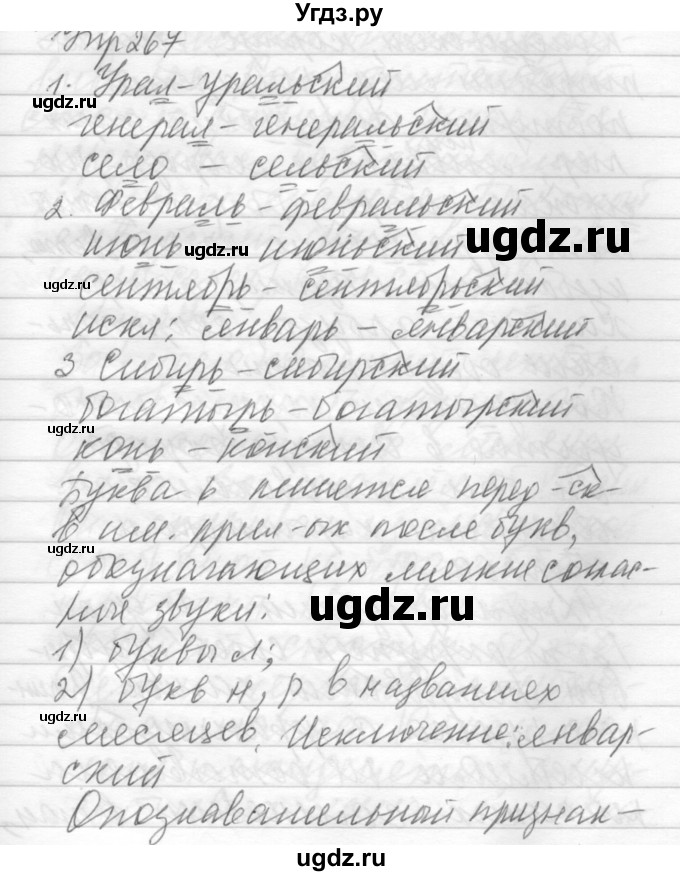 Угдз.ру
Упр 267
1. Урал - уральский
ugdz.ru
генерал - генеральский
село - сельский
2. Февраль - февральский
июнь - июньский
ugdz.ru
ugdz.ru
сентябрь - сентябрьский
ugdz.ru
искл: январь - январский
3 Сибирь - сибирский
богатырь - богатырский
ugdz.ru
конь - конский
Буква ь пишется перед -ск-
в им. прил-ых после букв,
ugdz.ru
обозначающих мягкие соглас-
ные звуки:
ugdz.ru
1) буквы л;
2) букв н, р в названиях
ugdz.ru
месяцев. Исключение: январ-
ский
Опознавательный признак -
ugdz.ru